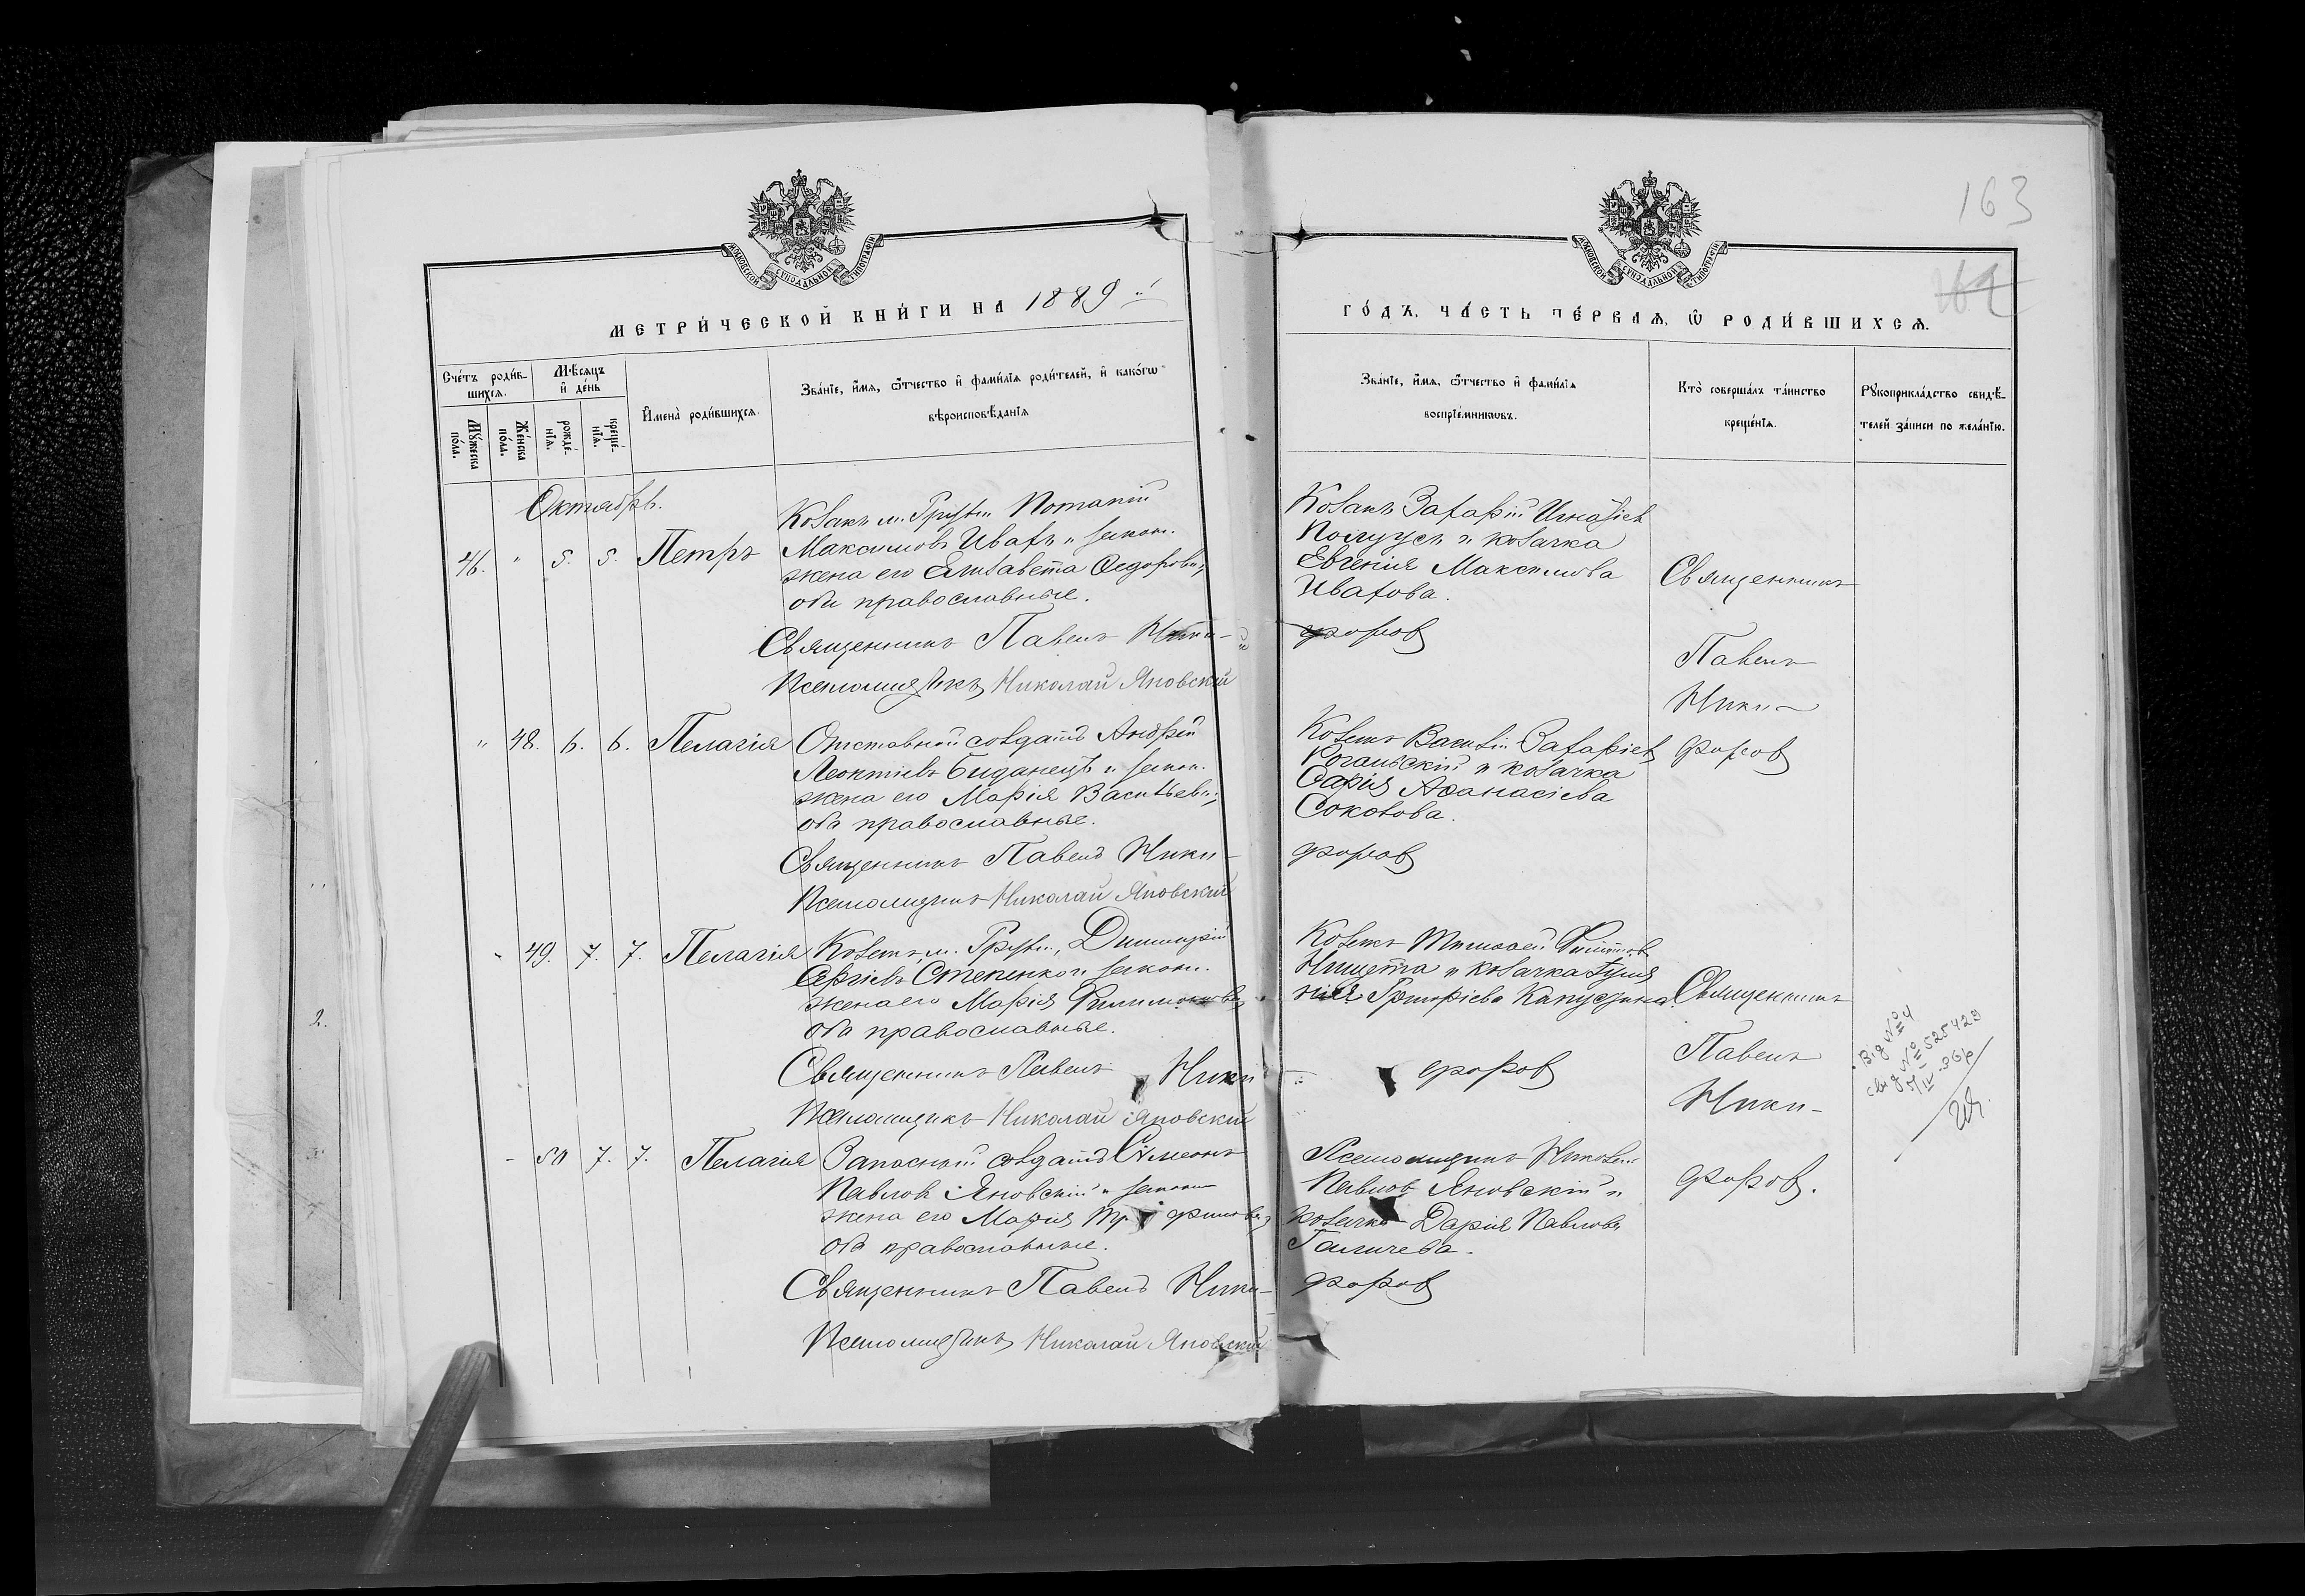 163
МОСКОВСКОЙ СѴНОДАЛЬНОЙ ТИПОГРАФІИ
МОСКОВСКОЙ СѴНОДАЛЬНОЙ ТИПОГРАФІИ
МЕТРИ́ЧЕСКОЙ КНИ́ГИ НА 1889 й
ГО́ДЪ, ЧА́СТЬ ПЕ́РВАѦ, Ѽ РОДИ́ВШИХСѦ.
Сче́тъ роди́в-
шихсѧ.
Мѣ́сѧцъ
и҆ де́нь
Мꙋ́жеска
по́ла.
Же́нска
по́ла.
рожде́-
нїѧ.
креще́-
нїѧ.
И҆мена̀ роди́вшихсѧ.
Зва́нїе, и҆́мѧ, ѻ҆́тчество и҆ фами́лїѧ роди́телей, и҆ како́гѡ
вѣроисповѣ́данїѧ
Зва́нїе, и҆́мѧ, ѻ҆́тчество и҆ фами́лїѧ
воспрїе́мникѡвъ.
Кто̀ соверша́лъ та́инство
креще́нїѧ.
Рꙋкоприкла́дство свидѣ́-
телей за́писи по жела́нїю.
Октябрь.
46. " 5. 5. Петръ
Козакъ м. Потапій
Максимовъ Ивахъ и закон.
жена его Елизавета Ѳедорова,
оба православные.
Священникъ Павелъ Ники-
форовъ
Псаломщикъ Николай Яновскій
Козакъ Захарій
и козачка
Евгенія Максимова
Ивахова.
Священникъ
Павелъ
Ники-
форовъ
" 48. 6. 6. Пелагія
Отставной солдатъ Андрей
Леонтіевъ и закон.
жена его Марія Васильева,
оба православные.
Священникъ Павелъ Ники-
форовъ
Псаломщикъ Николай Яновскій
Козакъ Василій Захаріевъ
и козачка
Дарія Аѳанасіева
Соколова.
- 49. 7. 7. Пелагія
Козакъ м. Димитрій
Сергіевъ Степенко и закон.
жена его Марія Филимонова,
оба православные.
Священникъ Павелъ Ники
форовъ
Псаломщикъ Николай Яновскій
Козакъ
Нищета и козачка
Григоріева
Священникъ
Павелъ
Ники-
форовъ.
Від № 4
свід № 525429
- 50 7. 7. Пелагія
Запасный солдатъ Сѵмеонъ
Павловъ Яновскій и законн
жена его Марія
оба православные.
Священникъ Павелъ Ники-
форовъ
Псаломщикъ Николай Яновскій
Псаломщикъ Николай
Павловъ Яновскій и
козачка Дарія Павлова
Галичева.
2.